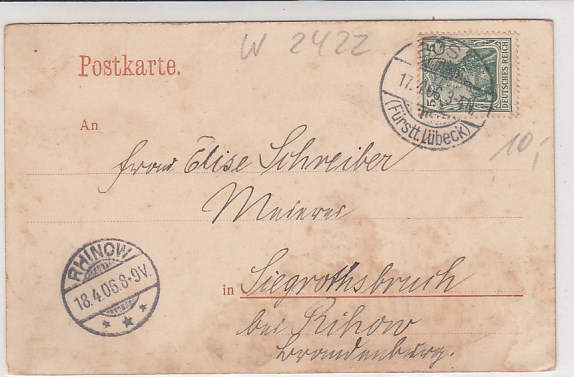 W 2422
Postkarte.
17.4.06.3-4N.
(Fürstt. Lübeck)
5
DEUTSCHES REICH
10,-
An
Frau Elise Schreiber
Meierei
RHINOW
18.4.06.8-9V.
in Siegrothsbruch
bei Rihow
Brandenburg.